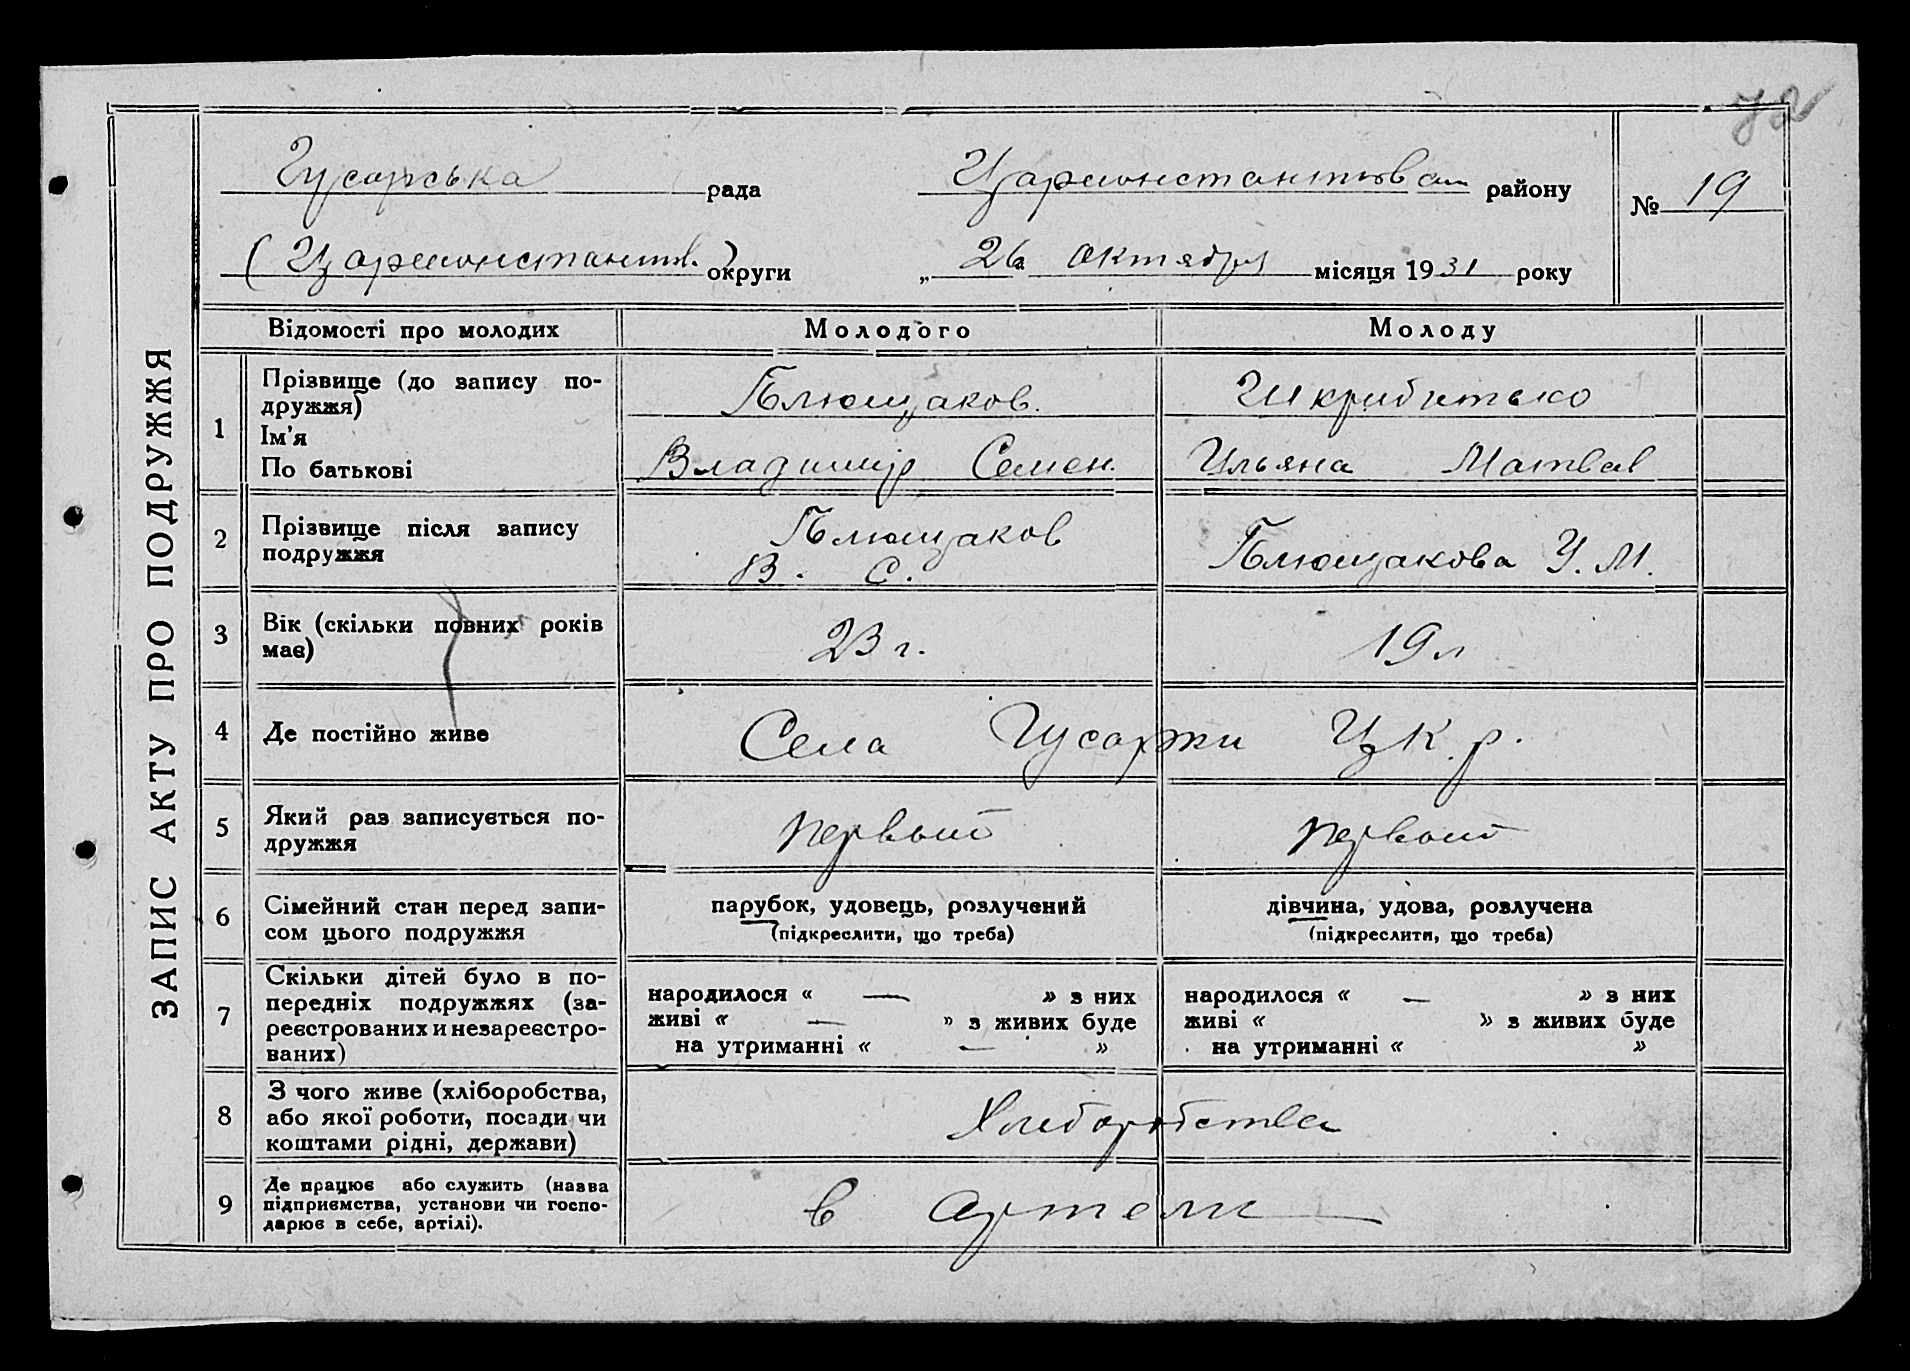 72
ЗАПИС АКТУ ПРО ПОДРУЖЖЯ
Гусарська рада
Цареконстантнвск району
№ 19
(Царсконстантнв.) округи
„ 26 октября місяця 1931 року
Відомості про молодих
Молодого
Молоду
1
Прізвище (до запису по-
дружжя)
Ім'я
По батькові
Блющаков.
Владимир Семен.
Шкрибитько
Ульяна Матвев
2
Прізвище після запису
подружжя
Блющаков
В. С.
Блющакова У. М.
3
Вік (скільки повних років
має)
23 г.
19 л
4
Де постійно живе
Села Гусарки Ц К. р.
5
Який раз записується по-
дружжя
первый
первый
6
Сімейний стан перед запи-
сом цього подружжя
парубок, удовець, розлучений
(підкреслити, що треба)
дівчина, удова, розлучена
(підкреслити, що треба)
7
Скільки дітей було в по-
передніх подружжях (за-
реєстрованих и незареєстро-
ваних)
народилося « — » з них
живі « — » з живих буде
на утриманні « — »
народилося « — » з них
живі « » з живих буде
на утриманні « »
8
З чого живе (хліборобства,
або якої роботи, посади чи
коштами рідні, держави)
Хлеборобства
9
Де працює або служить (назва
підприємства, установи чи госпо-
дарює в себе, артілі).
в артели —